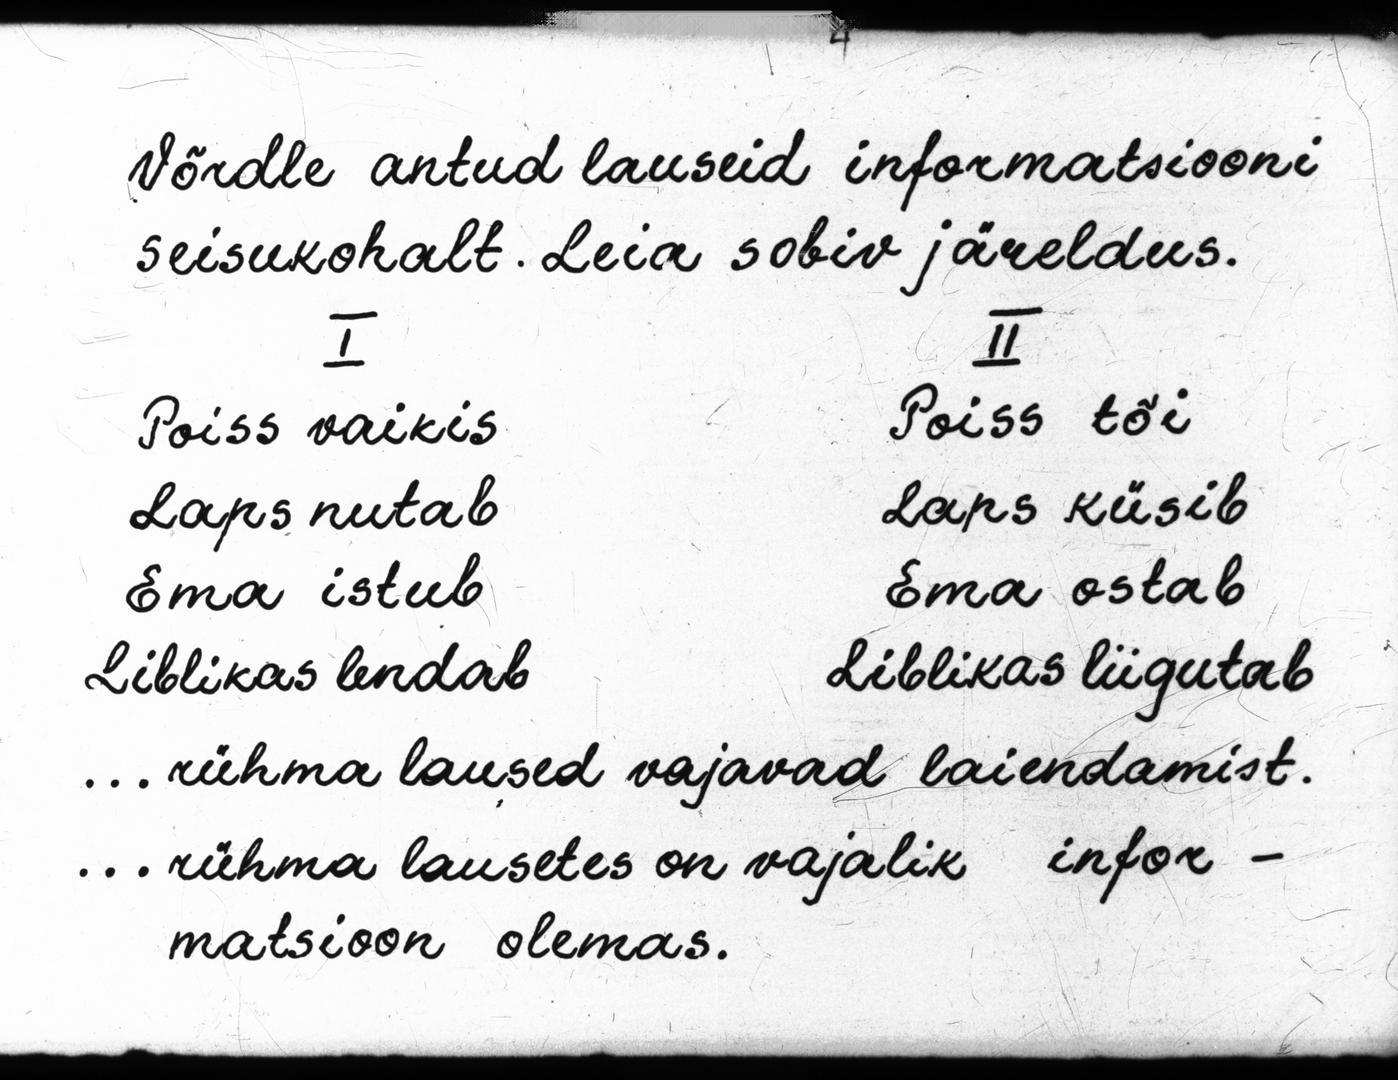 4
Võrdle antud lauseid informatsiooni
seisukohalt. Leia sobiv järeldus.
I II
Poiss vaikis Poiss tõi
Laps nutab Laps küsib
Ema istub Ema ostab
Liblikas lendab Liblikas liigutab
... rühma laused vajavad laiendamist.
... rühma lausetes on vajalik infor-
matsioon olemas.